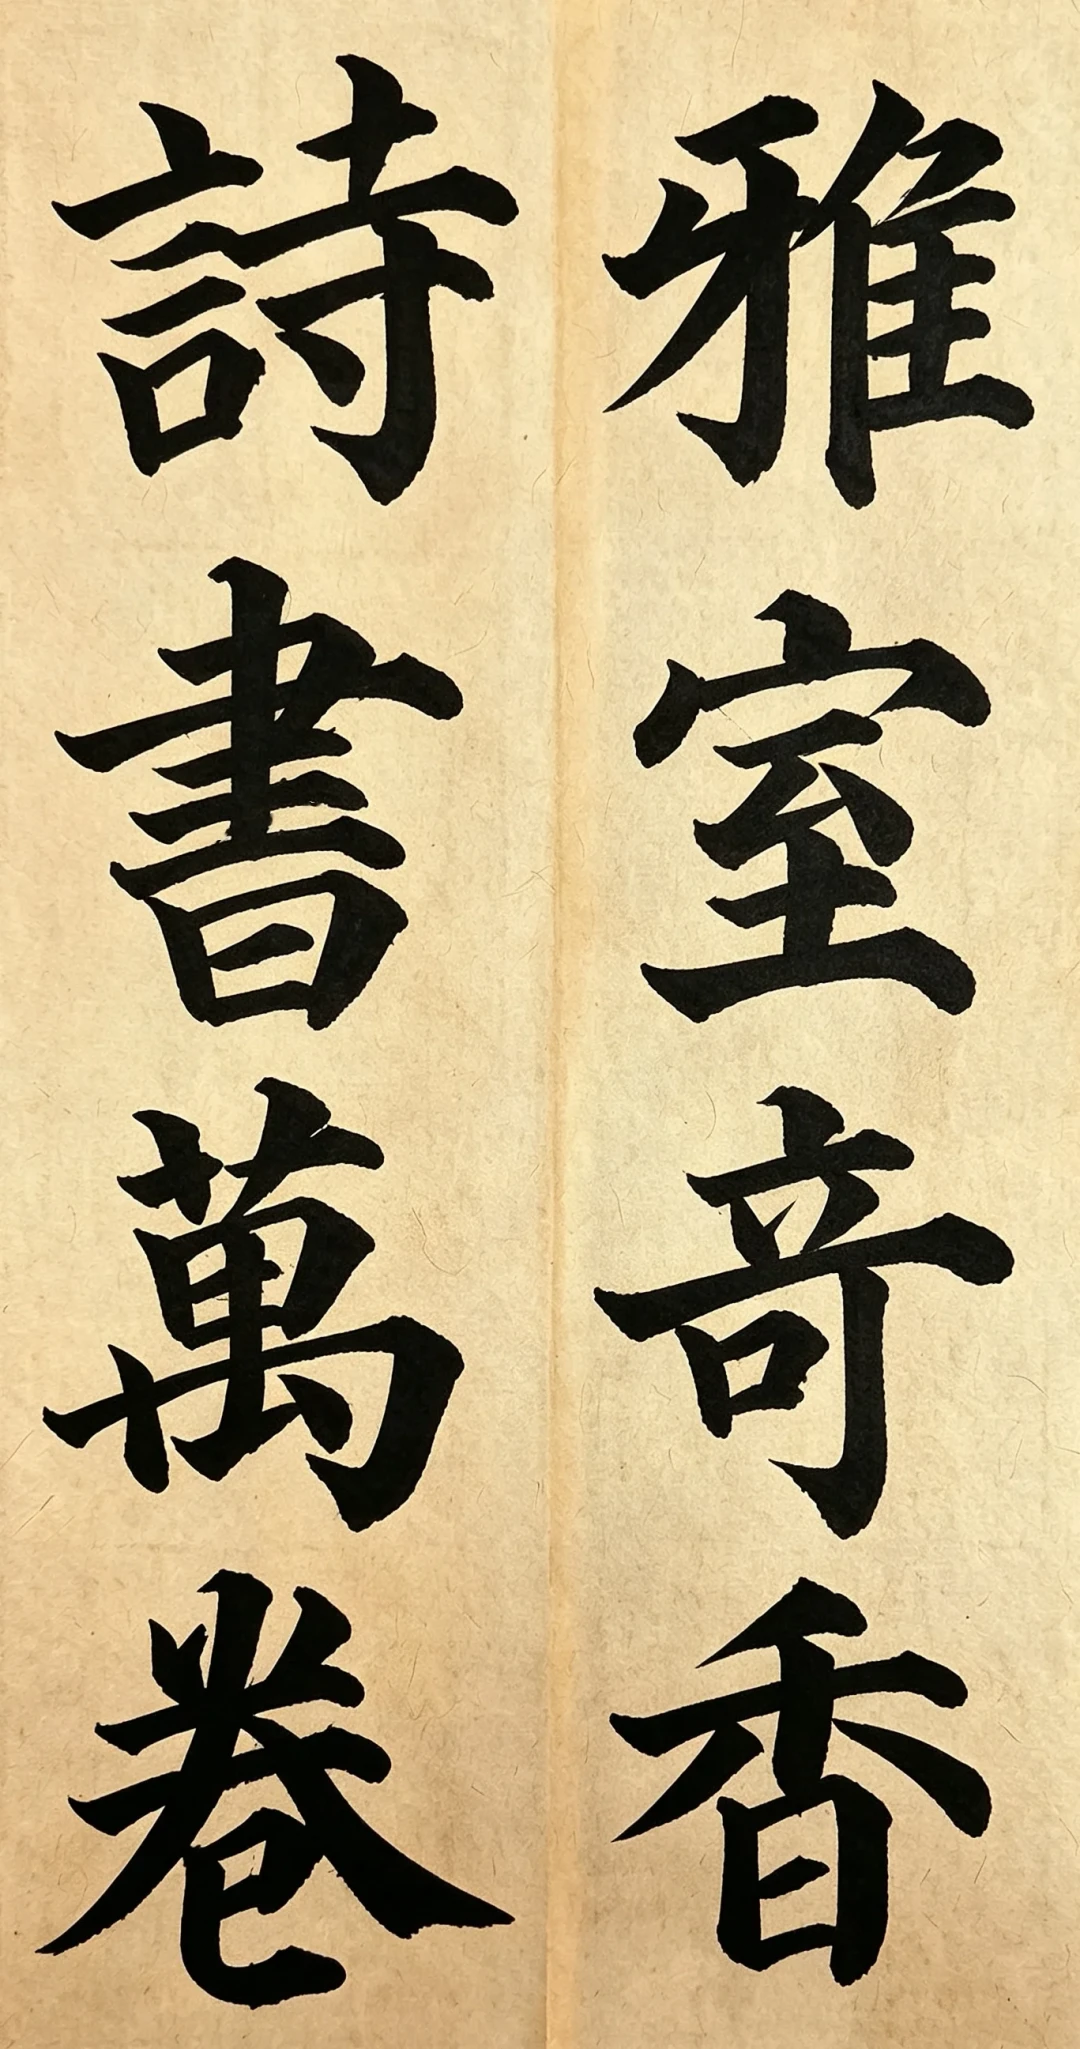 雅室竒香
詩書萬卷